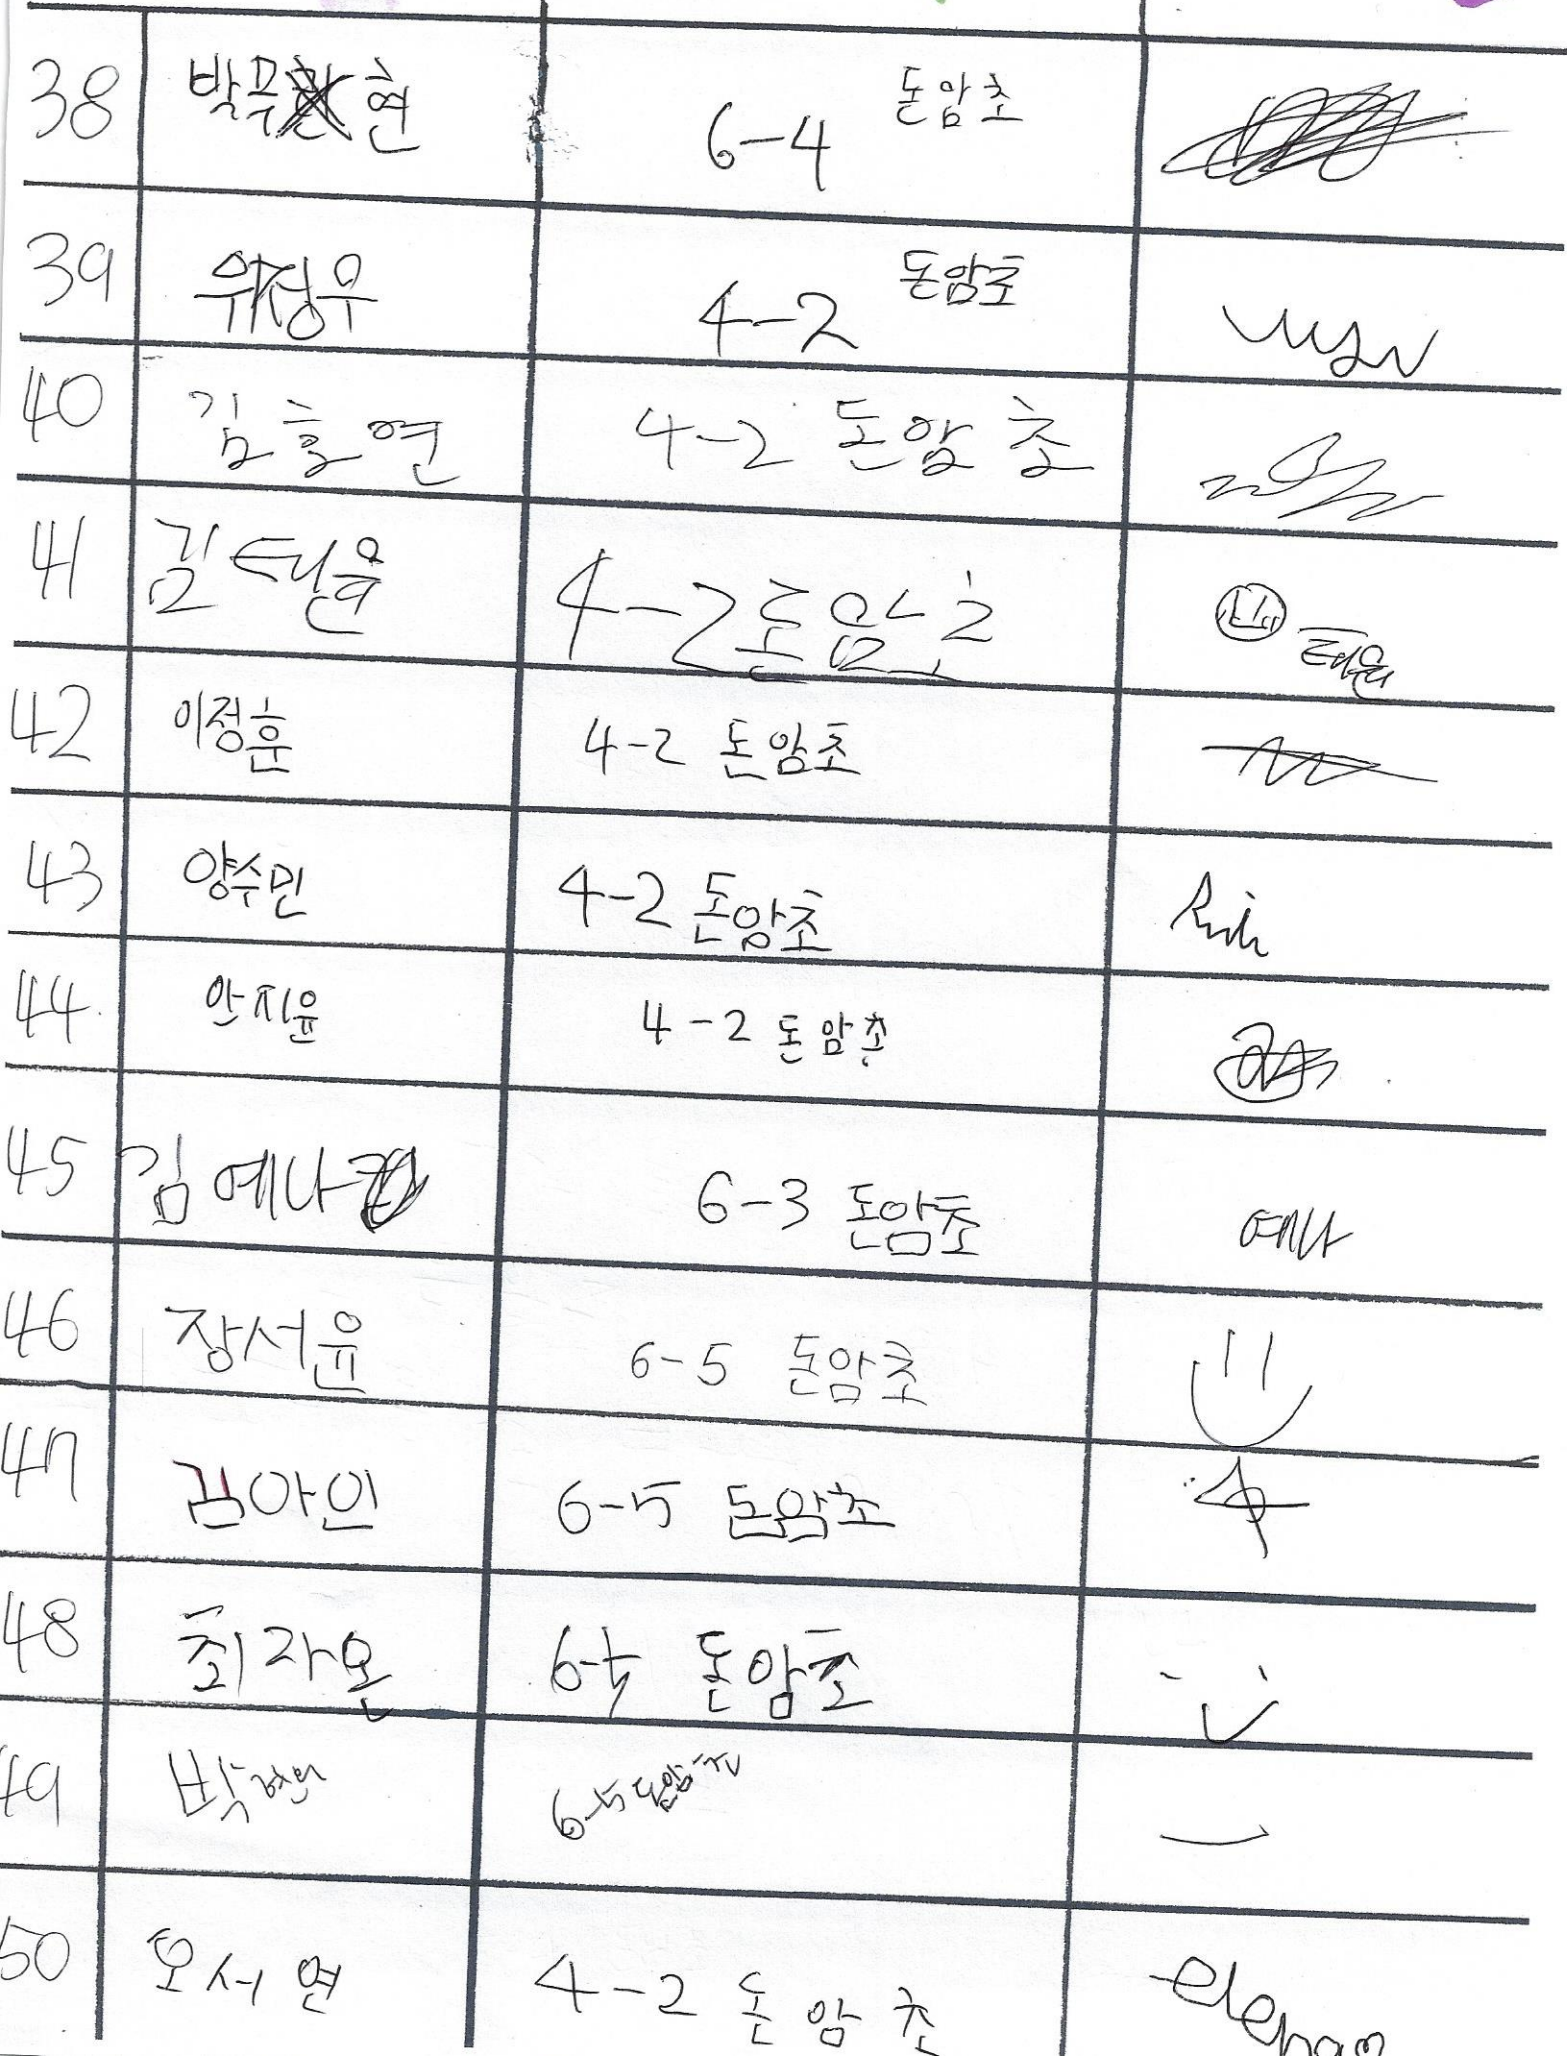 38 박무현 6-4 돈암초
39 위정우 4-2 돈암초
40 김흥연 4-2 돈암초
41 김태윤 4-2 돈암초 태윤
42 이정훈 4-2 돈암초
43 양수민 4-2 돈암초
44 안지윤 4-2 돈암초
45 김예나 6-3 돈암초 예나
46 장서윤 6-5 돈암초
47 김아인 6-5 돈암초
48 최자온 6-5 돈암초
49 박 6-5 돈암초
50 오서연 4-2 돈암초